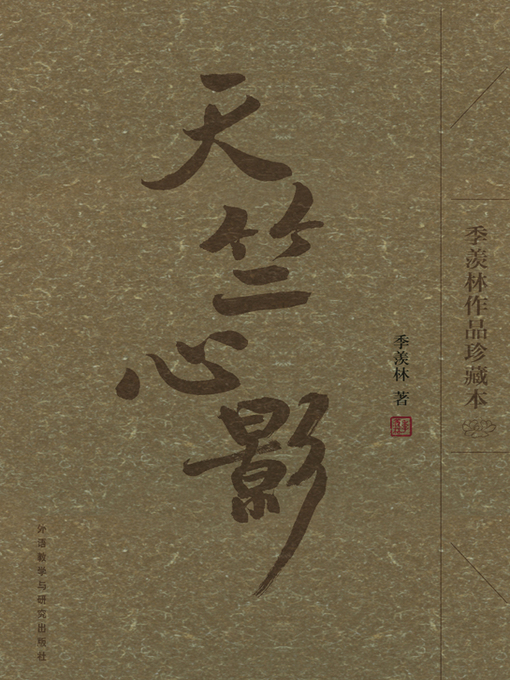 天竺心影
季羡林作品珍藏本
季羡林 著
外语教学与研究出版社